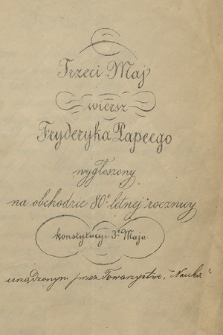 Trzeci Maj
wiersz
Fryderyka Papeego
wygłoszony
na obchodzie 80-letniej rocznicy
Konstytucyi 3º Maja
urządzonym przez Towarzystwo "Nauka"